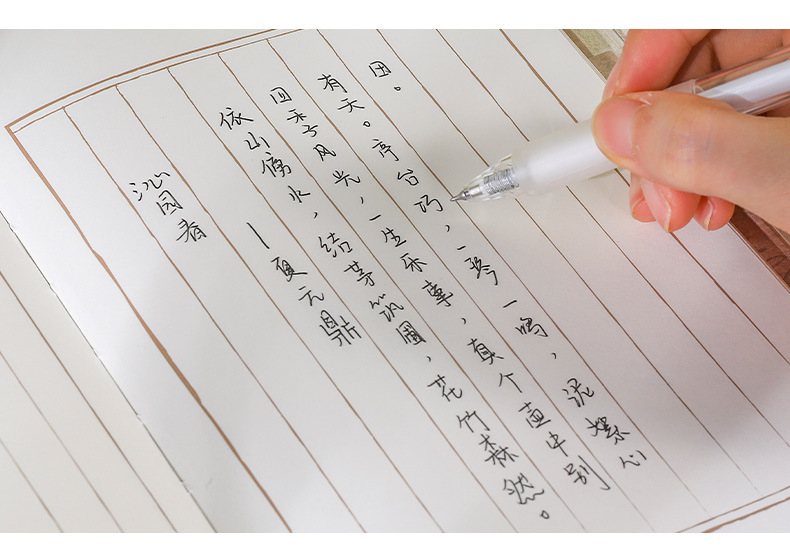 沁园春
—夏元鼎
依山傍水，结茅筑圃，花竹森然。
四季风光，一生乐事，真个壶中别
有天。亭台巧，一琴一鹤，泥絮心
田。